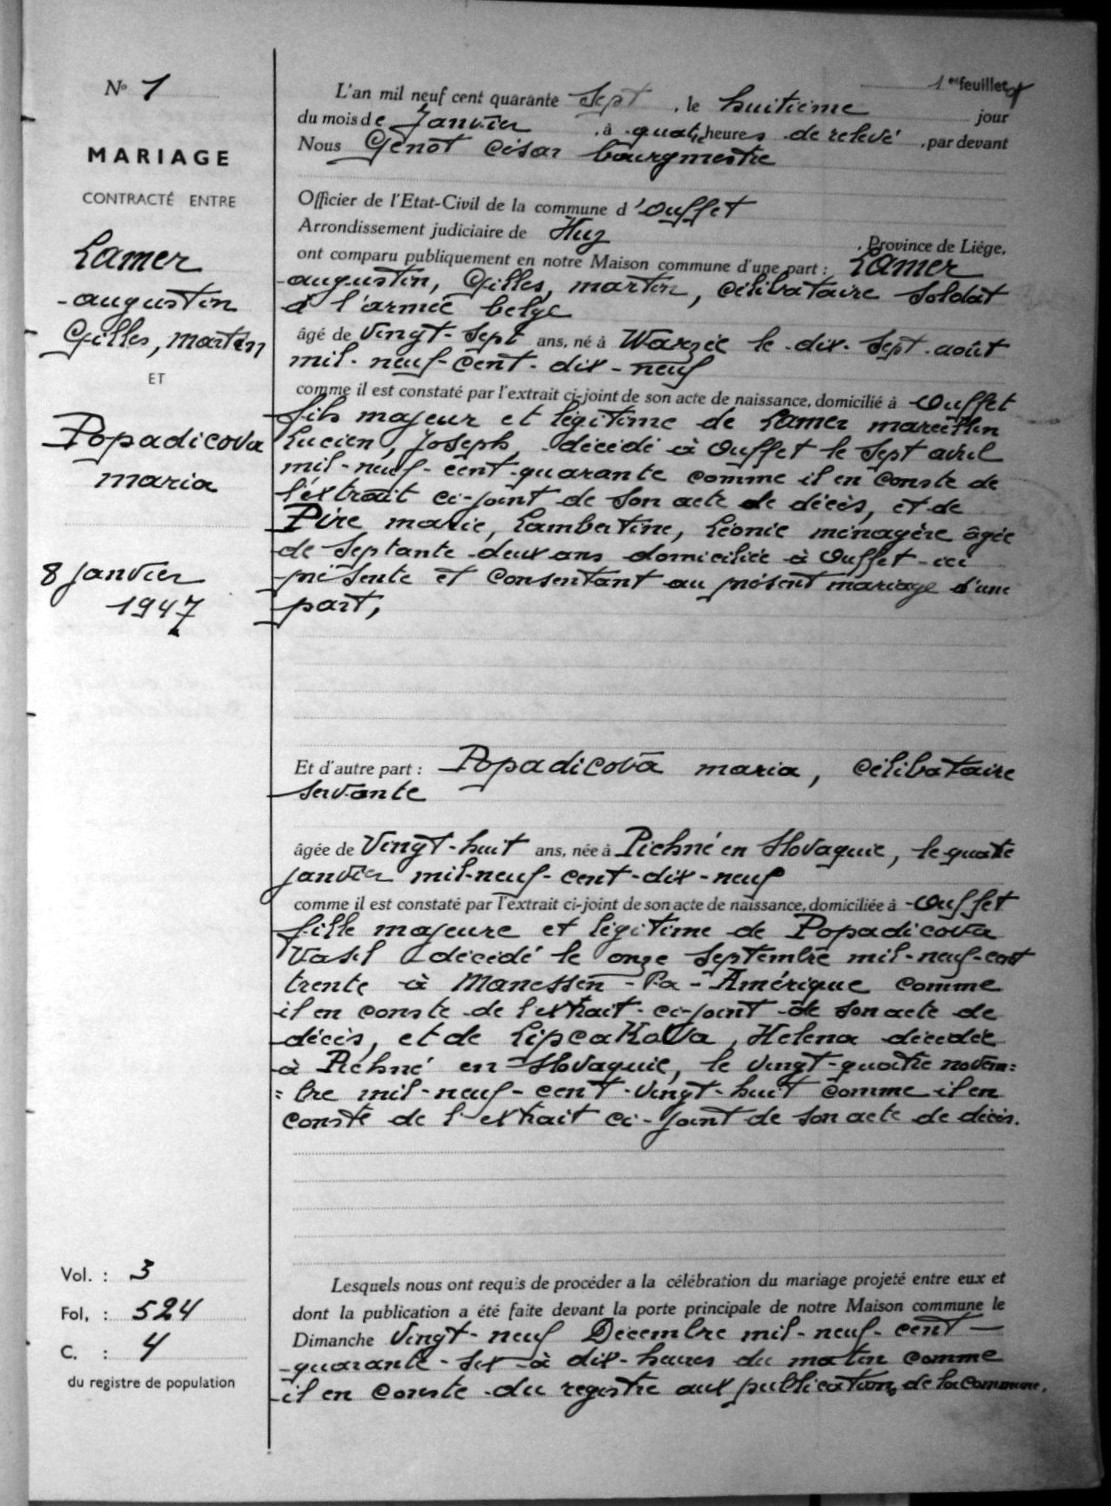 N° 1
MARIAGE
CONTRACTÉ ENTRE
Lamer
augustin
Gilles, martin
ET
Popadicova
maria
8 janvier
1947
Vol. : 3
Fol. : 524
C. : 4
du registre de population
1er feuillet
L'an mil neuf cent quarante Sept, le huitième jour
du mois de Janvier, à quatre heures de relevé, par devant
Nous Genot César bourgmestre
Officier de l'Etat-Civil de la commune d'Ouffet
Arrondissement judiciaire de Huy, Province de Liége,
ont comparu publiquement en notre Maison commune d'une part : Lamer
augustin, Gilles, martin, célibataire Soldat
à l'armée belge
âgé de Vingt-Sept ans, né à Warzée le dix-Sept août
mil-neuf-cent-dix-neuf
comme il est constaté par l'extrait ci-joint de son acte de naissance, domicilié à Ouffet
fils majeur et légitime de Lamer marcellin
Lucien, Joseph, décédé à Ouffet le Sept avril
mil-neuf-cent-quarante comme il en conste de
l'extrait ci-joint de son acte de décès, et de
Pire marie, Lambertine, Léonie ménagère âgée
de Septante-deux ans domiciliée à Ouffet ici
présente et consentant au présent mariage d'une
part,
Et d'autre part : Popadicova maria, célibataire
servante
âgée de Vingt-huit ans, née à Pichné en Slovaquie, le quatre
janvier mil-neuf-cent-dix-neuf
comme il est constaté par l'extrait ci-joint de son acte de naissance, domiciliée à Ouffet
fille majeure et légitime de Popadicova
Vasil décédé le onze Septembre mil-neuf-cent
trente à Manessen-Pa-Amérique comme
il en conste de l'extrait ci-joint de son acte de
décès, et de Lipcakova, Helena décédée
à Pichné en Slovaquie, le vingt-quatre novem=
=bre mil-neuf-cent-vingt-huit comme il en
conste de l'extrait ci-joint de son acte de décès.
Lesquels nous ont requis de procéder a la célébration du mariage projeté entre eux et
dont la publication a été faite devant la porte principale de notre Maison commune le
Dimanche Vingt-neuf Décembre mil-neuf-cent-
quarante-six à dix-heures du matin comme
il en conste du registre aux publications de la commune.